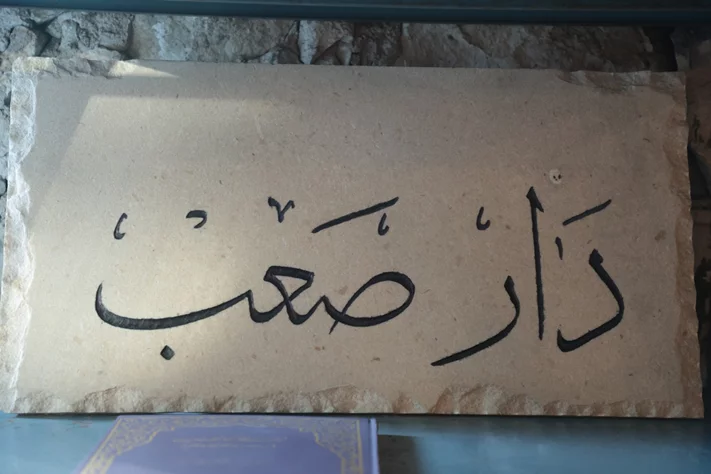 دَارْ صَعْبْ